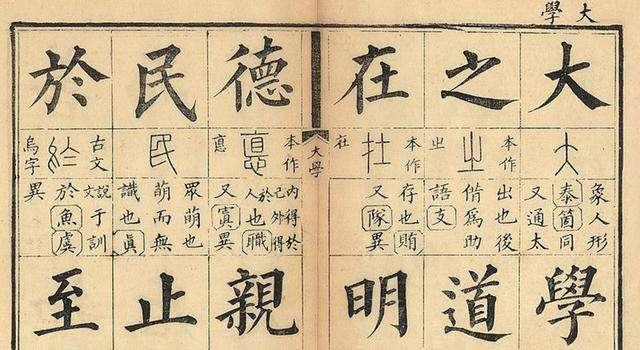 大學
大
象人形
泰箇同
又通太
學
之
本作
㞢
出也後
借爲助
語支
道
在
本作
在
存也賄
又隊異
明
大學
德
本作
悳
内得於
己外得
於人也職
又寘異
親
民
衆萌也
萌而無
識也眞
止
於
古文
烏字
說文于訓
於魚虞
異
至